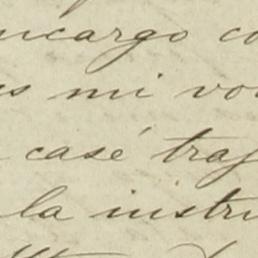 ncargo co
s mi vo
casé traj
la instru